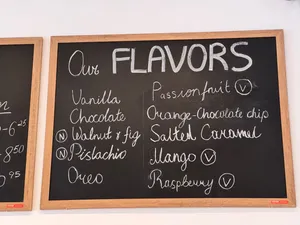 Our FLAVORS
Vanilla
Chocolate
Ⓝ Walnut & fig
Ⓝ Pistachio
Oreo
Passionfruit Ⓥ
Orange-Chocolate chip
Salted Caramel
Mango Ⓥ
Raspberry Ⓥ